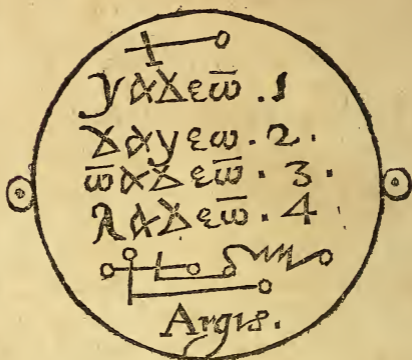 yαΔεω̄ . 1
Δαyεω . 2 .
ω̄αΔεω̄ . 3 .
λαΔεω̄ . 4
Argis.